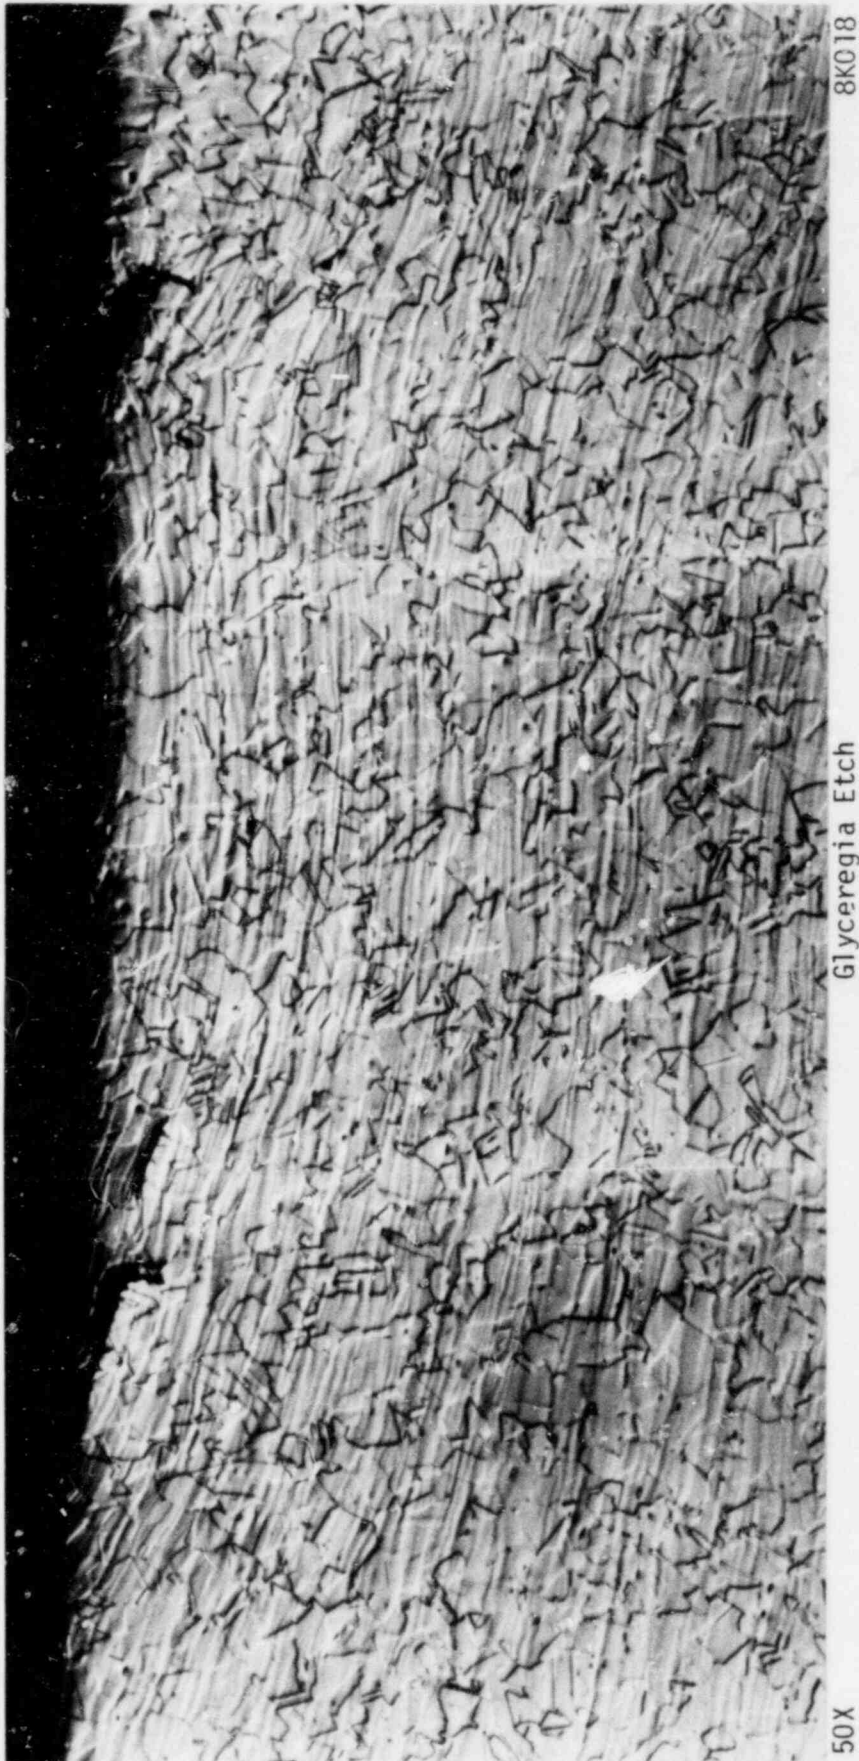 50X Glyceregia Etch 8K018